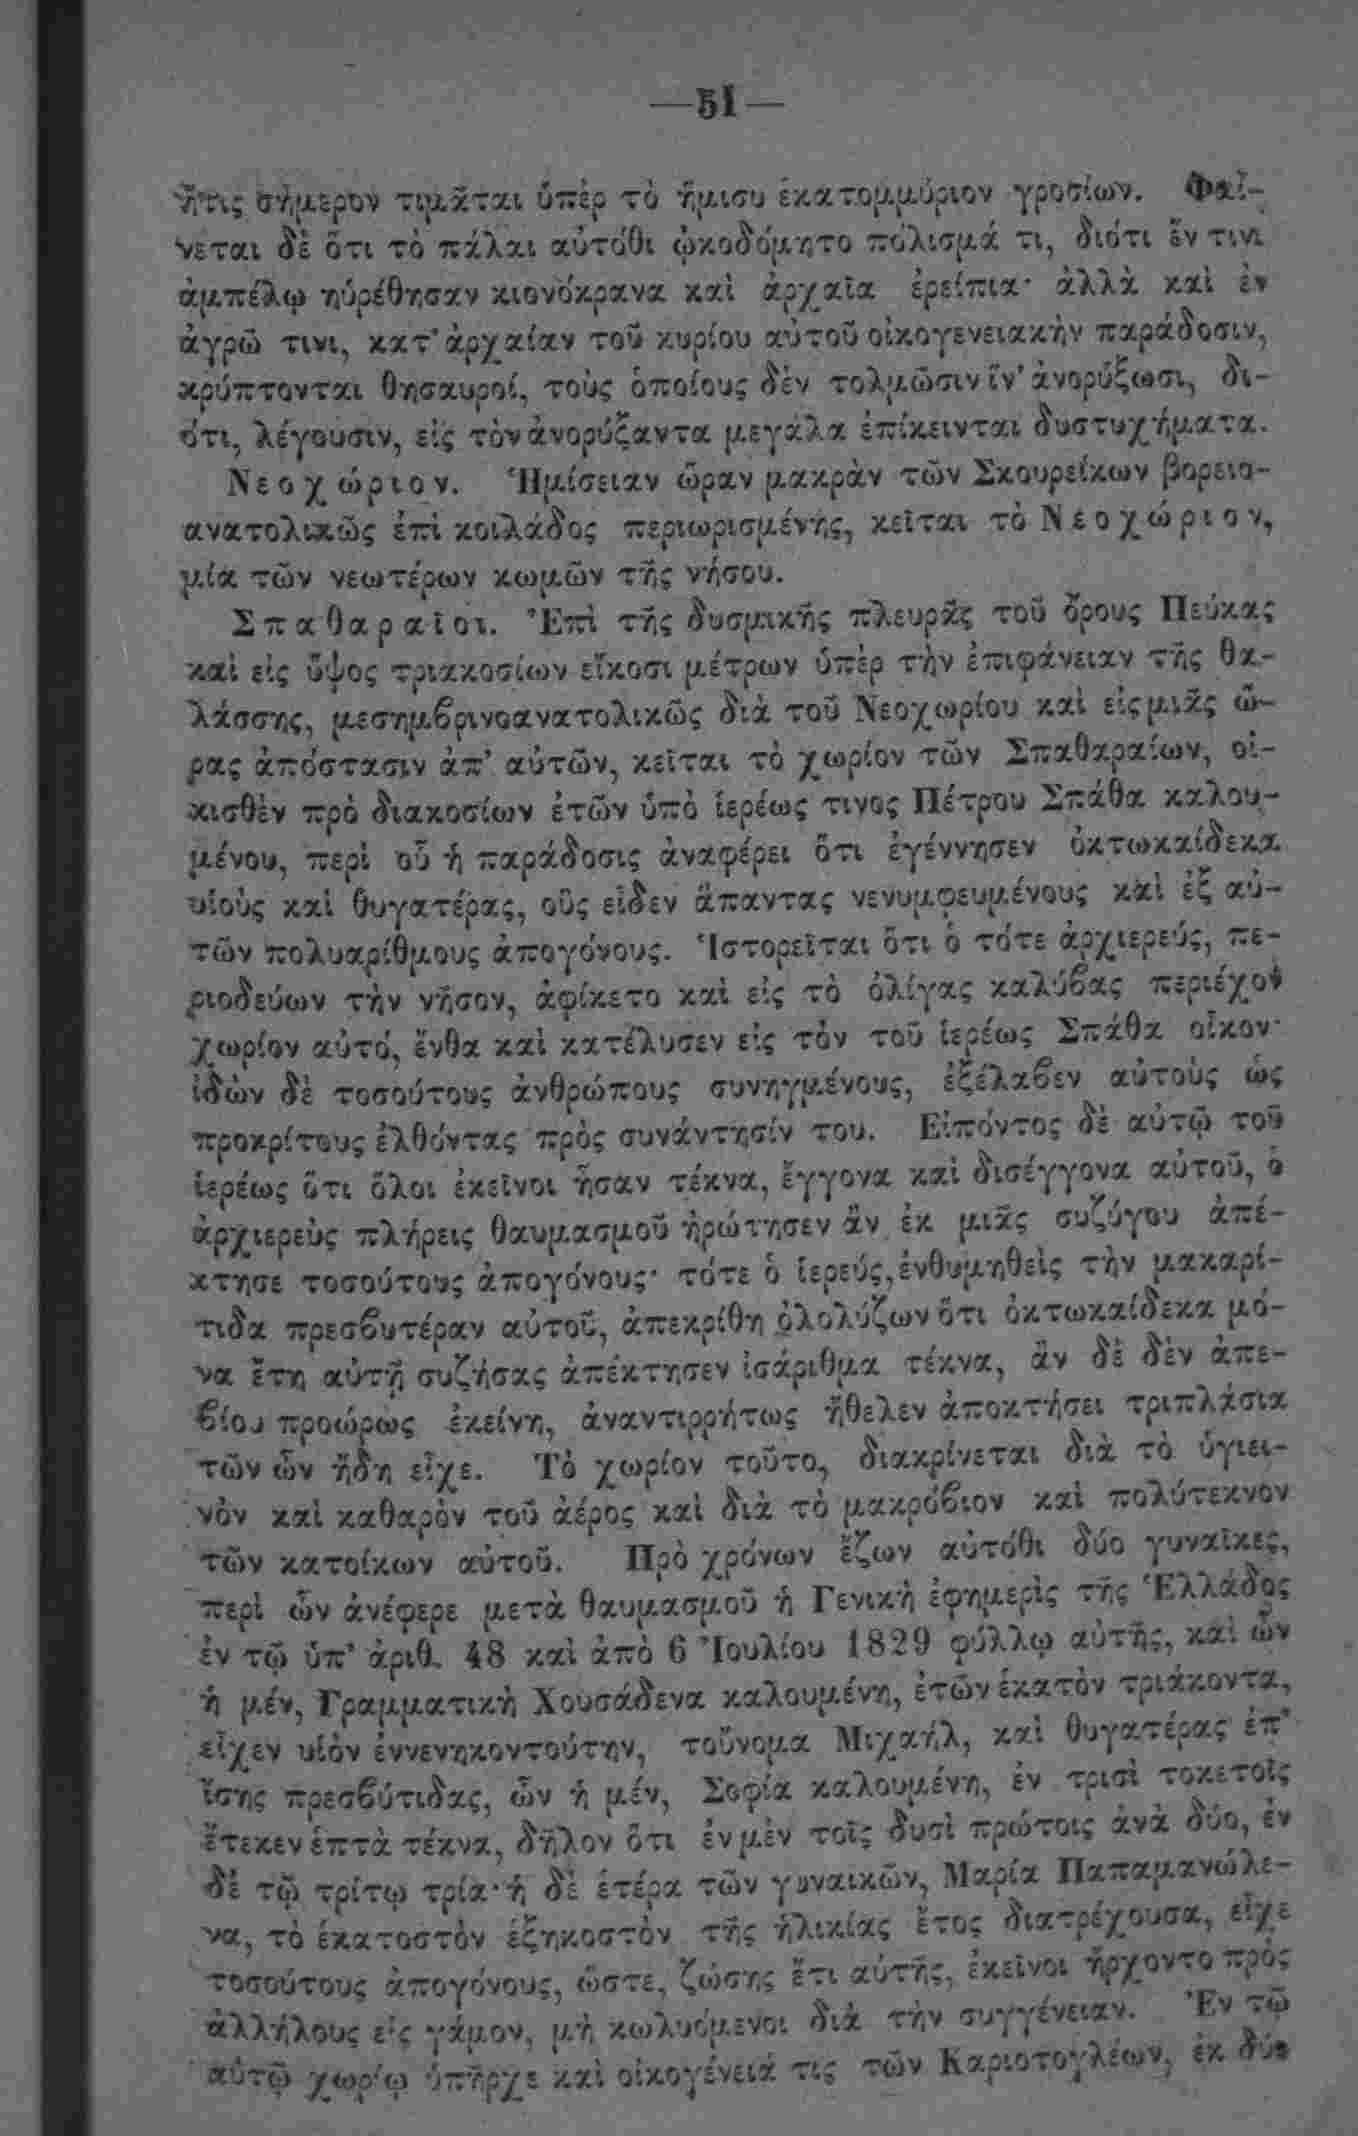 —51—
ἥτις σήμερον τιμᾶται ὑπὲρ τὸ ἥμισυ ἑκατομμύριον γροσίων. Φαί-
νεται δὲ ὅτι τὸ πάλαι αὐτόθι ᾠκοδόμητο πόλισμά τι, διότι ἔν τινι
ἀμπέλῳ ηὑρέθησαν κιονόκρανα καὶ ἀρχαῖα ἐρείπια· ἀλλὰ καὶ ἐν
ἀγρῷ τινι, κατ' ἀρχαίαν τοῦ κυρίου αὐτοῦ οἰκογενειακὴν παράδοσιν,
κρύπτονται θησαυροί, τοὺς ὁποίους δὲν τολμῶσιν ἵν' ἀνορύξωσι, δι-
ότι, λέγουσιν, εἰς τὸν ἀνορύξαντα μεγάλα ἐπίκεινται δυστυχήματα.
Νεοχώριον. Ἡμίσειαν ὥραν μακρὰν τῶν Σκουρείκων βορειο-
ανατολικῶς ἐπὶ κοιλάδος περιωρισμένης, κεῖται τὸ Νεοχώριον,
μία τῶν νεωτέρων κωμῶν τῆς νήσου.
Σπαθαραῖοι. Ἐπὶ τῆς δυσμικῆς πλευρᾶς τοῦ ὄρους Πεύκας
καὶ εἰς ὕψος τριακοσίων εἴκοσι μέτρων ὑπὲρ τὴν ἐπιφάνειαν τῆς θα-
λάσσης, μεσημβρινοανατολικῶς διὰ τοῦ Νεοχωρίου καὶ εἰς μιᾶς ὥ-
ρας ἀπόστασιν ἀπ' αὐτῶν, κεῖται τὸ χωρίον τῶν Σπαθαραίων, οἰ-
κισθὲν πρὸ διακοσίων ἐτῶν ὑπὸ ἱερέως τινος Πέτρου Σπάθα καλου-
μένου, περὶ οὗ ἡ παράδοσις ἀναφέρει ὅτι ἐγέννησεν ὀκτωκαίδεκα
υἱοὺς καὶ θυγατέρας, οὓς εἶδεν ἅπαντας νενυμφευμένους καὶ ἐξ αὐ-
τῶν πολυαρίθμους ἀπογόνους. Ἱστορεῖται ὅτι ὁ τότε ἀρχιερεύς, πε-
ριοδεύων τὴν νῆσον, ἀφίκετο καὶ εἰς τὸ ὀλίγας καλύβας περιέχον
χωρίον αὐτό, ἔνθα καὶ κατέλυσεν εἰς τὸν τοῦ ἱερέως Σπάθα οἶκον·
ἰδὼν δὲ τοσούτους ἀνθρώπους συνηγμένους, ἐξέλαβεν αὐτοὺς ὡς
προκρίτους ἐλθόντας πρὸς συνάντησίν του. Εἰπόντος δὲ αὐτῷ τοῦ
ἱερέως ὅτι ὅλοι ἐκεῖνοι ἦσαν τέκνα, ἔγγονα καὶ δισέγγονα αὐτοῦ, ὁ
ἀρχιερεὺς πλήρεις θαυμασμοῦ ἠρώτησεν ἂν ἐκ μιᾶς συζύγου ἀπέ-
κτησε τοσούτους ἀπογόνους· τότε ὁ ἱερεύς, ἐνθυμηθεὶς τὴν μακαρί-
τιδα πρεσβυτέραν αὐτοῦ, ἀπεκρίθη ὀλολύζων ὅτι ὀκτωκαίδεκα μό-
να ἔτη αὐτῇ συζήσας ἀπέκτησεν ἰσάριθμα τέκνα, ἂν δὲ δὲν ἀπε-
βίου προώρως ἐκείνη, ἀναντιρρήτως ἤθελεν ἀποκτήσει τριπλάσια
τῶν ὧν ἤδη εἶχε. Τὸ χωρίον τοῦτο, διακρίνεται διὰ τὸ ὑγιει-
νὸν καὶ καθαρὸν τοῦ ἀέρος καὶ διὰ τὸ μακρόβιον καὶ πολύτεκνον
τῶν κατοίκων αὐτοῦ. Πρὸ χρόνων ἔζων αὐτόθι δύο γυναῖκες,
περὶ ὧν ἀνέφερε μετὰ θαυμασμοῦ ἡ Γενικὴ ἐφημερὶς τῆς Ἑλλάδος
ἐν τῷ ὑπ' ἀριθ. 48 καὶ ἀπὸ 6 Ἰουλίου 1829 φύλλῳ αὐτῆς, καὶ ὧν
ἡ μέν, Γραμματικὴ Χουσάδενα καλουμένη, ἐτῶν ἑκατὸν τριάκοντα,
εἶχεν υἱὸν ἐννενηκοντούτην, τοὔνομα Μιχαήλ, καὶ θυγατέρας ἐπ'
ἴσης πρεσβύτιδας, ὧν ἡ μέν, Σοφία καλουμένη, ἐν τρισὶ τοκετοῖς
ἔτεκεν ἑπτὰ τέκνα, δῆλον ὅτι ἐν μὲν τοῖς δυσὶ πρώτοις ἀνὰ δύο, ἐν
δὲ τῷ τρίτῳ τρία· ἡ δὲ ἑτέρα τῶν γυναικῶν, Μαρία Παπαμανώλε-
να, τὸ ἑκατοστὸν ἑξηκοστὸν τῆς ἡλικίας ἔτος διατρέχουσα, εἶχε
τοσούτους ἀπογόνους, ὥστε, ζώσης ἔτι αὐτῆς, ἐκεῖνοι ἤρχοντο πρὸς
ἀλλήλους εἰς γάμον, μὴ κωλυόμενοι διὰ τὴν συγγένειαν. Ἐν τῷ
αὐτῷ χωρίῳ ὑπῆρχε καὶ οἰκογένειά τις τῶν Καριοτογλέων, ἐκ δύο